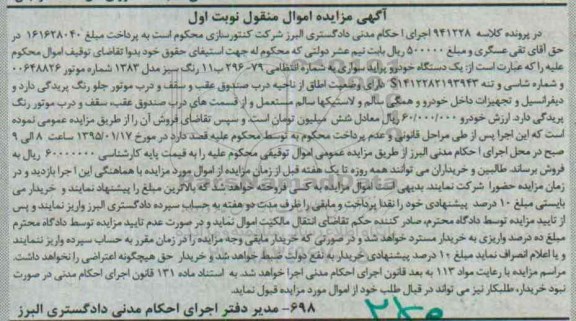 آگهی مزایده اموال منقول نوبت اول
در پرونده کلاسه ۹۴۱۲۲۸ اجرای احکام مدنی دادگستری البرز شرکت کنتورسازی محکوم است به پرداخت مبلغ ۱۶۱۶۲۸۰۴۰ در
حق آقای تقی عسگری و مبلغ ۵۰۰۰۰۰ ریال بابت نیم عشر دولتی که محکوم له جهت استیفای حقوق خود بدوا تقاضای توقیف اموال محکوم
علیه را که عبارت است از: یک دستگاه خودرو پراید سواری به شماره انتظامی ۷۹-۲۹۶ب۱۱ رنگ سبز مدل ۱۳۸۳ شماره موتور ۰۰۶۴۸۸۲۶
و شماره شاسی و تنه S۱۴۱۲۲۸۲۱۹۳۹۴۳ دارای وضعیت اطاق از ناحیه درب صندوق عقب و سقف و درب موتور جلو رنگ پریدگی دارد و
دیفرانسیل و تجهیزات داخل خودرو و همگی سالم و لاستیکها سالم مستعمل و از قسمت های درب صندوق عقب، سقف و درب موتور رنگ
پریدگی دارد. ارزش خودرو ۶۰/۰۰۰/۰۰۰ ریال معادل شش میلیون تومان است. و سپس تقاضای فروش آن را از طریق مزایده عمومی نموده
است که این اجرا پس از طی مراحل قانونی و عدم پرداخت محکوم به توسط محکوم علیه قصد دارد در مورخ ۱۳۹۵/۰۱/۱۷ ساعت ۸ الی ۹
صبح در محل اجرای احکام مدنی البرز از طریق مزایده عمومی اموال توقیفی محکوم علیه را به قیمت پایه کارشناسی ۶۰۰۰۰۰۰۰ ریال به
فروش برساند. طالبین و خریداران می توانند همه روزه تا یک هفته قبل از زمان مزایده از اموال مورد مزایده با هماهنگی این اجرا بازدید و در
زمان مزایده حضورا شرکت نمایند. بدیهی است اموال مزایده به کسی فروخته خواهد شد که بالاترین مبلغ را پیشنهاد نمایند و خریدار می
بایستی مبلغ ۱۰ درصد پیشنهادی خود را نقدا پرداخت و مابقی را ظرف مدت دو هفته به حساب سپرده دادگستری البرز واریز نمایند و پس
از تایید مزایده توسط دادگاه محترم، صادر کننده حکم تقاضای انتقال مالکیت اموال نماید و در صورت عدم تایید مزایده توسط دادگاه محترم
مبلغ ده درصد واریزی به خریدار مسترد خواهد شد و در صورتی که خریدار مابقی وجه مزایده را در زمان مقرر به حساب سپرده واریز ننمایند
و یا اعلام انصراف نماید مبلغ ۱۰ درصد پیشنهادی خریدار به نفع دولت ضبط خواهد شد و خریدار حق هیچگونه اعتراضی را نخواهد داشت.
مراسم مزایده با رعایت مواد ۱۱۳ به بعد قانون اجرای احکام مدنی اجرا خواهد شد. به استناد ماده ۱۳۱ قانون اجرای احکام مدنی در صورت
نبود خریدار، طلبکار نیز می تواند در قبال طلب خود از اموال مورد مزایده قبول نماید.
۶۹۸- مدیر دفتر اجرای احکام مدنی دادگستری البرز